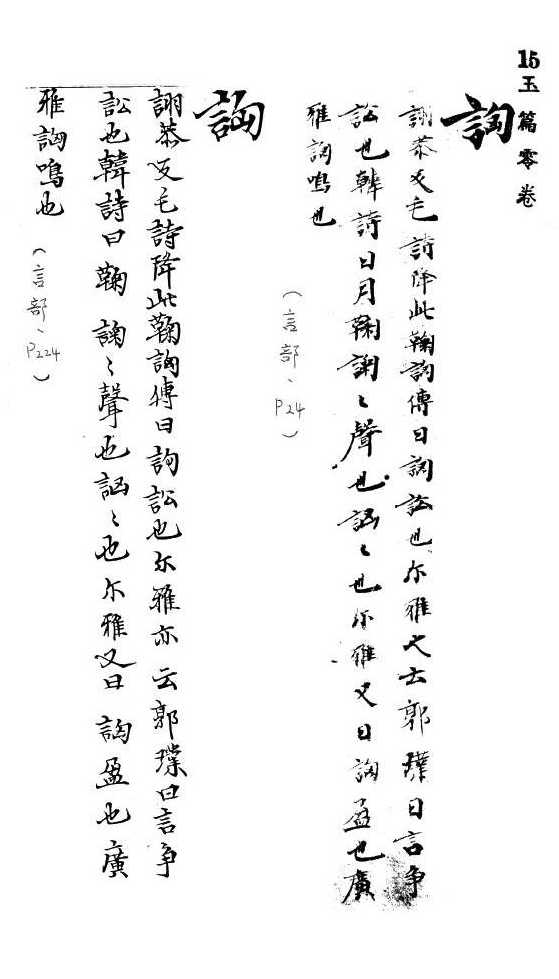 15玉篇零卷
訩
詡恭反毛詩降此鞠訩傳曰訩訟也尔雅亦云郭璞曰言争
訟也韓詩曰鞠訩〻聲也詾〻也尔雅又曰訩盈也廣
雅訩鳴也
（言部、P24）
訩
詡恭反毛詩降此鞠訩傳曰訩訟也尔雅亦云郭璞曰言争
訟也韓詩曰鞠訩〻聲也詾〻也尔雅又曰訩盈也廣
雅訩鳴也
（言部、P224）